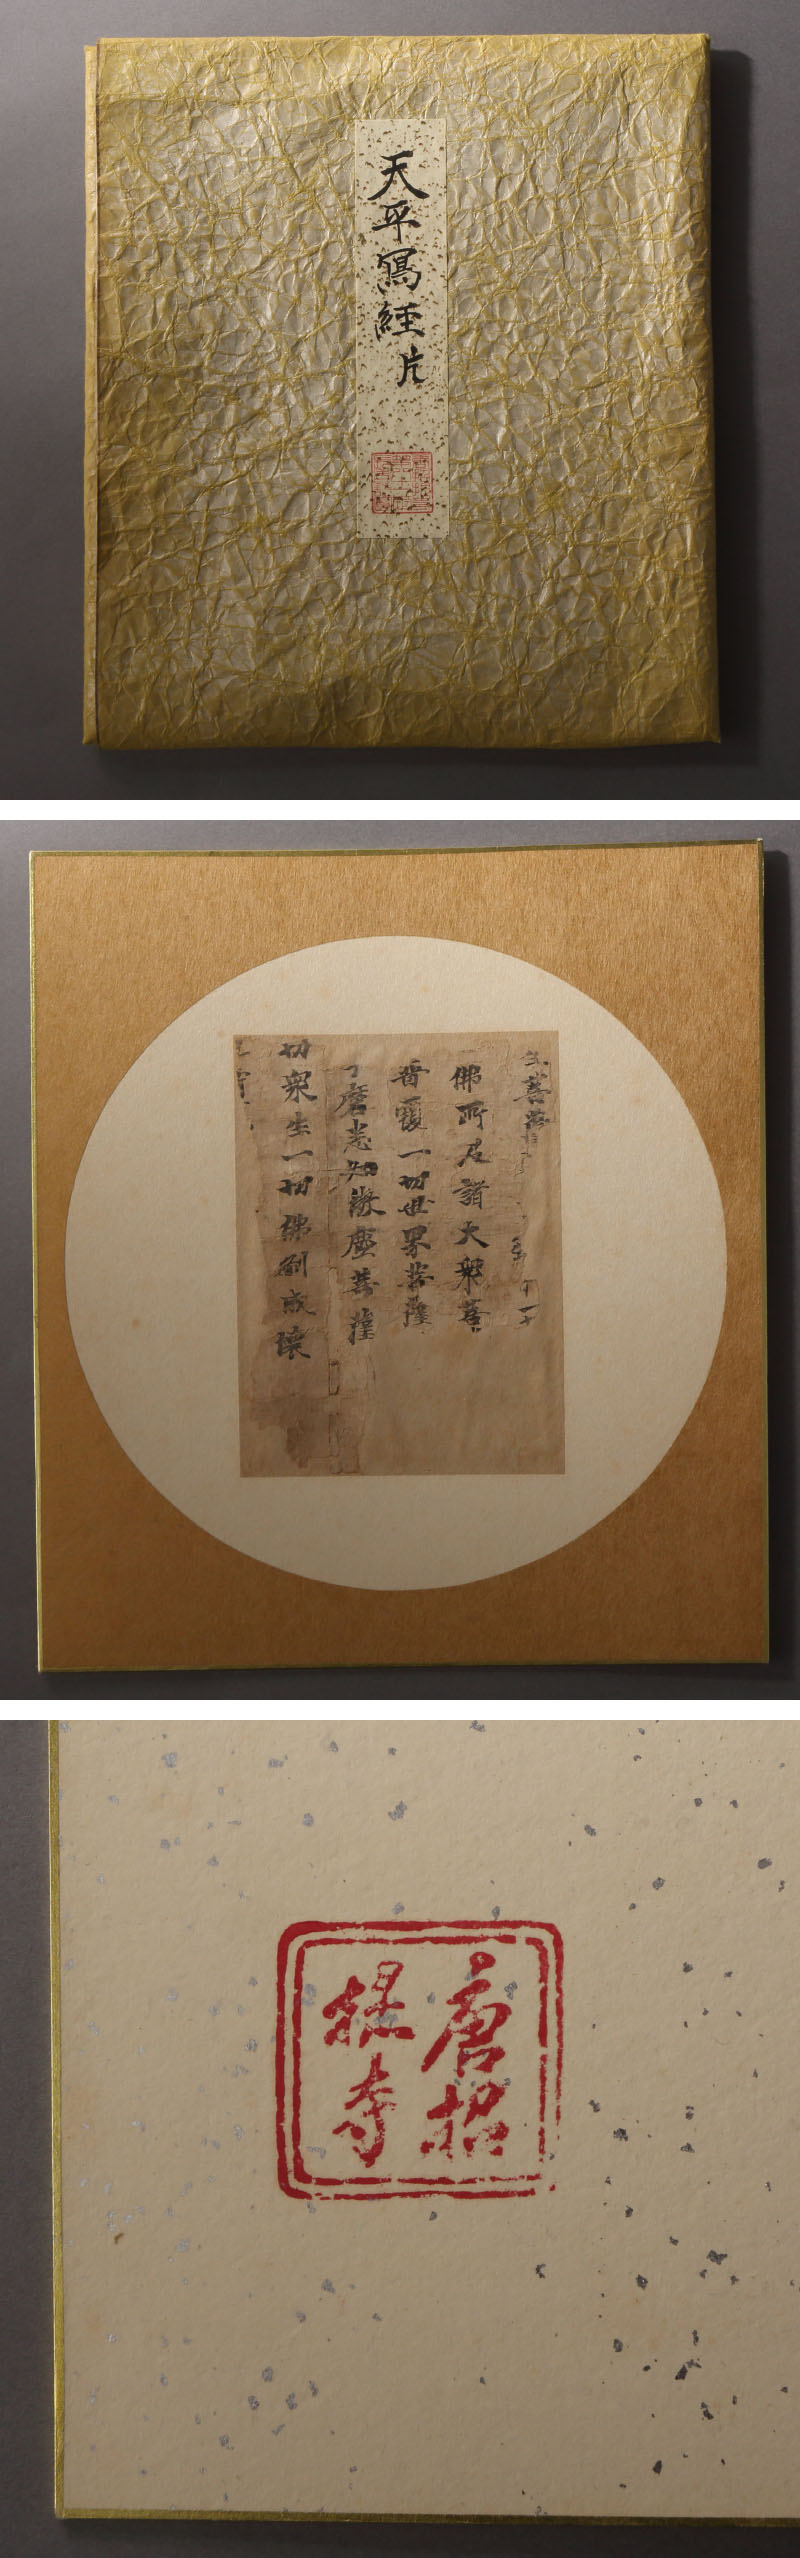 天平寫經片
菩薩
佛所居諸大衆菩
普覆一切世界菩薩
悉知微塵菩薩
切衆生一切佛刹成壞
唐招
提寺